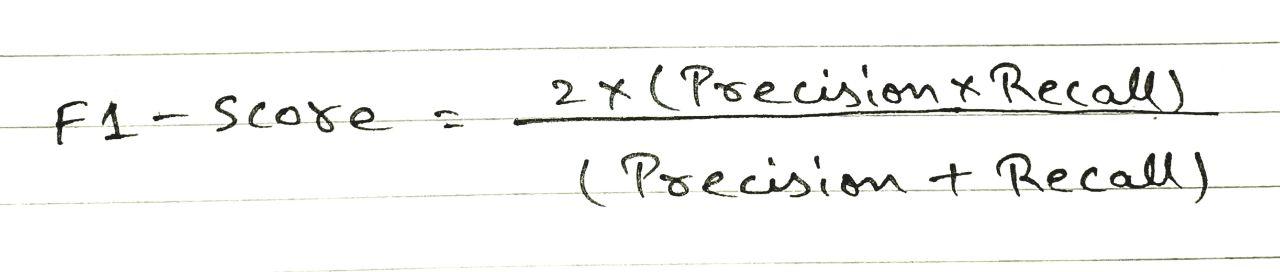 F1 - Score = 2 x (Precision x Recall)
(Precision + Recall)